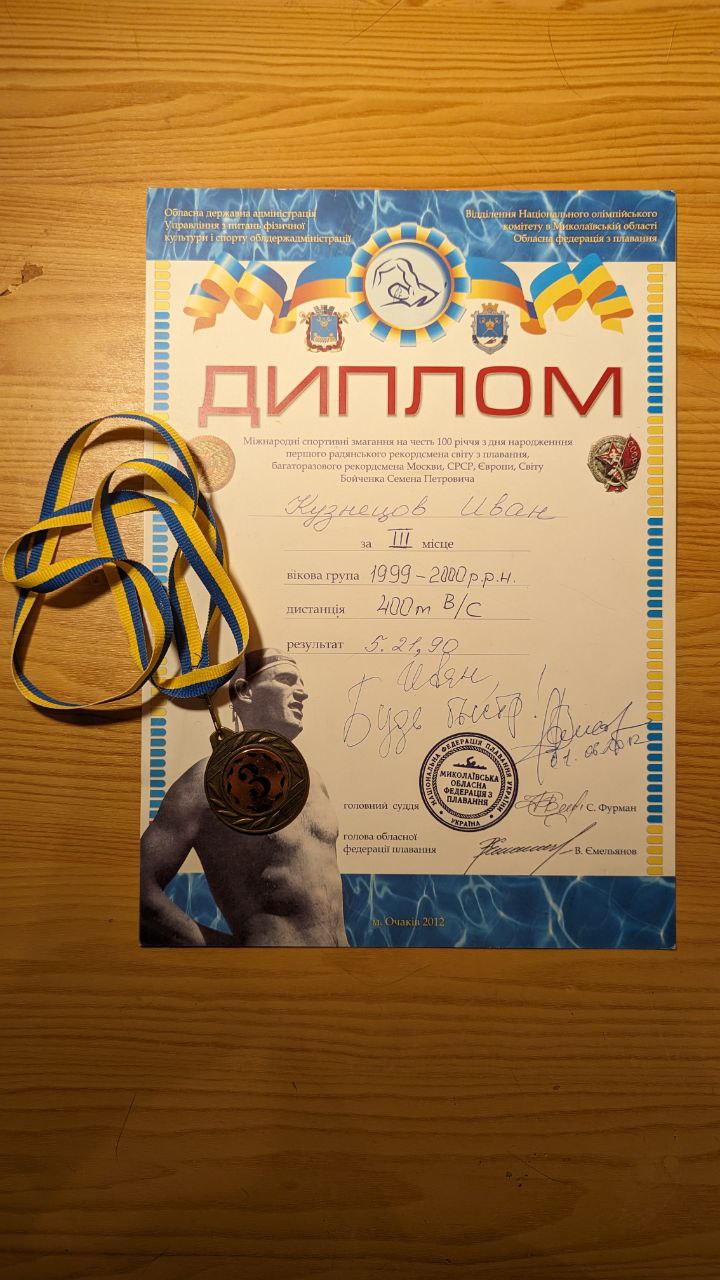 Обласна державна адміністрація
Управління з питань фізичної
культури і спорту облдержадміністрації
Відділення Національного олімпійського
комітету в Миколаївській області
Обласна федерація з плавання
ДИПЛОМ
Міжнародні спортивні змагання на честь 100 річчя з дня народженння
першого радянського рекордсмена світу з плавання,
багаторазового рекордсмена Москви, СРСР, Європи, Світу
Бойченка Семена Петровича
Кузнецов Иван
за III місце
вікова група 1999-2000 р.р.н.
дистанція 400m В/С
результат 5.21,90
Иван,
Будь быстр!
НАЦІОНАЛЬНА ФЕДЕРАЦІЯ ПЛАВАННЯ УКРАЇНИ
МИКОЛАЇВСЬКА
ОБЛАСНА
ФЕДЕРАЦІЯ З
ПЛАВАННЯ
УКРАЇНА
головний суддя С. Фурман
голова обласної
федерації плавання В. Ємельянов
3
м. Очаків 2012